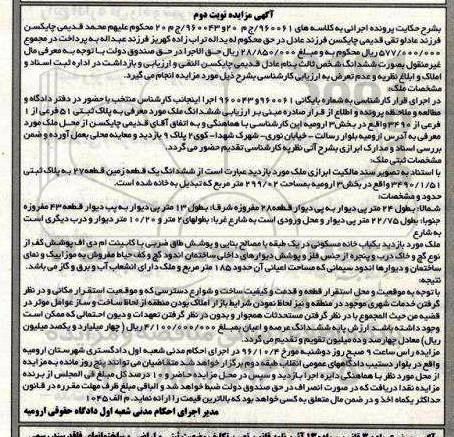 آگهی مزایده نوبت دوم
بشرح حکایت پرونده اجرائی به کلاسه های ۹۶۰۰۶۱/ج م ۲۰و۹۶۰۰۴۳/ج م ۲۰ محکوم علیهم محمد قدیمی چایکسن
فرزند عادلو تقی قدیمی چایکسن فرزند عادل در حق محکوم له یداله تراب زاده کهریز فرزند عبداله به پرداخت در مجموع
۵۷۷/۰۰۰/۰۰۰ریال محکوم به و مبلغ ۲۸/۸۵۰/۰۰۰ ریال حق الاجرا در حق صندوق دولت با توجه به معرفی مال
غیرمنقول بصورت ششدانگ شخص ثالث بنام عادل قدیمی چایکسن النقی و ارزیابی و بازداشت در اداره ثبت اسناد و
املاک و ابلاغ نظریه و عدم تعرض به ارزیابی کارشناسی بشرح ذیل مورد مزایده انجام می گیرد.
مشخصات ملک:
در اجرای قرار کارشناسی به شماره بایگانی ۹۶۰۰۶۱و۹۶۰۰۴۳ اجرا اینجانب کارشناس منتخب با حضور در دفتر دادگاه و
مطالعه و ملاحظه پرونده و اطلاع از قرار صادره مبنی بر ارزیابی ششدانگ ملک مورد معرفی به پلاک ثبتی ۵۱ فرعی از ۱
فرعی از ۳۴۹۰ واقع در بخش۳ ارومیه این کارشناسی با هماهنگی و به اتفاق آقای قدیمی چایکسن از محل ملک مورد
معرفی به آدرس ارومیه بلوار رسالت - خیابان نوری- شهرک شهدا- کوی۲ پلاک ۹ بازدید و معاینه محلی بعمل آورده و ضمن
بررسی اسناد و مدارک ابرازی بشرح آتی نظریه کارشناسی تقدیم حضور می گردد.
مشخصات ثبتی ملک:
با استناد به تصویر سند مالکیت ابرازی ملک مورد بازدید عبارت است از ششدانگ یک قطعه زمین قطعه۲۷ به پلاک ثبتی
۳۴۹۰/۱/۵۱ واقع در بخش۳ ارومیه بمساحت ۲۹۹/۰۲ متر مربع که تبدیل به خانه شده است.
حدود و مشخصات:
شمالا: بطول ۲۴ متر پی دیوار به پی دیوار قطعه۲۸ مفروزه شرقا: بطول ۱۳ متر پی دیوار به پی دیوار قطعه۴۳ مفروزه
جنوبا: بطول ۲۲/۷۵ متر پی دیوار و محل ورودی است به شارع غربا: بطولهای۲ متر و ۱۰/۲۰ متر دیوار و درب دیگری است
به شارع
ملک مورد بازدید یکباب خانه مسکونی در یک طبقه با مصالح بنایی و پوشش طاق ضربی با کابینت ام دی اف پوشش کف از
نوع گچ و خاک درب و پنجره از جنس فلز و پوشش دیوارهای داخلی ساختمان اندود گچ و کف حیاط مفروش به موزاییک و نمای
ساختمان و دیوارها اندود سیمانی که مساحت اعیانی آن حدود ۱۸۵ متر مربع و ملک دارای انشعاب آب و برق و گاز می باشد.
نتیجه
با توجه به موقعیت و محل استقرار قطعه و قدمت و کیفیت ساخت و شوارع دسترسی که و موقعیت استقرار مکانی و در نظر
گرفتن خدمات شهری موجود در منطقه و نیز لحاظ نمودن شرایط بازار املاک بودن منطقه از لحاظ ساخت و ساز عوامل موثر در
قضیه من حیث المجموع با در نظر گرفتن مستحدثات همجوار و بدون در نظر گرفتن تعهدات و دیون احتمالی که ممکن است
وجود داشته باشد ارزش پایه ششدانگ عرصه و اعیان بمبلغ ۴/۱۰۰/۰۰۰/۰۰۰ریال ( چهار میلیارد و یکصد میلیون
ریال) معادل چهارصد و ده میلیون تقویم و تقدیم می گردد.
مزایده راس ساعت ۹ صبح روز دوشنبه مورخ ۹۶/۱۰/۴ در اجرای احکام مدنی شعبه اول دادگستری شهرستان ارومیه
واقع در بلوار دستیب دادگاههای عمومی انقلاب طبقه دوم برگزار خواهد شد متقاضیان می توانند پنج روز مانده به مزایده
از محل مورد نظر با هماهنگی دایره اجرا بازدید و سپس در محل مزایده حاضر و ۱۰ درصد کل مبلغ فی المجلس از برنده
مزایده نقدا دریافت که در صورت انصراف در حق صندوق دولت ضبط خواهد شد و الباقی مبلغ ظرف مهلت مقرره در قانون
حداکثر یکماه اخذ و در ضمن مال متعلق به کسی خواهد بود که بالاترین قیمت را ارائه نماید. م الف ۱۰۴۵
مدیر اجرای احکام مدنی شعبه اول دادگاه حقوقی ارومیه